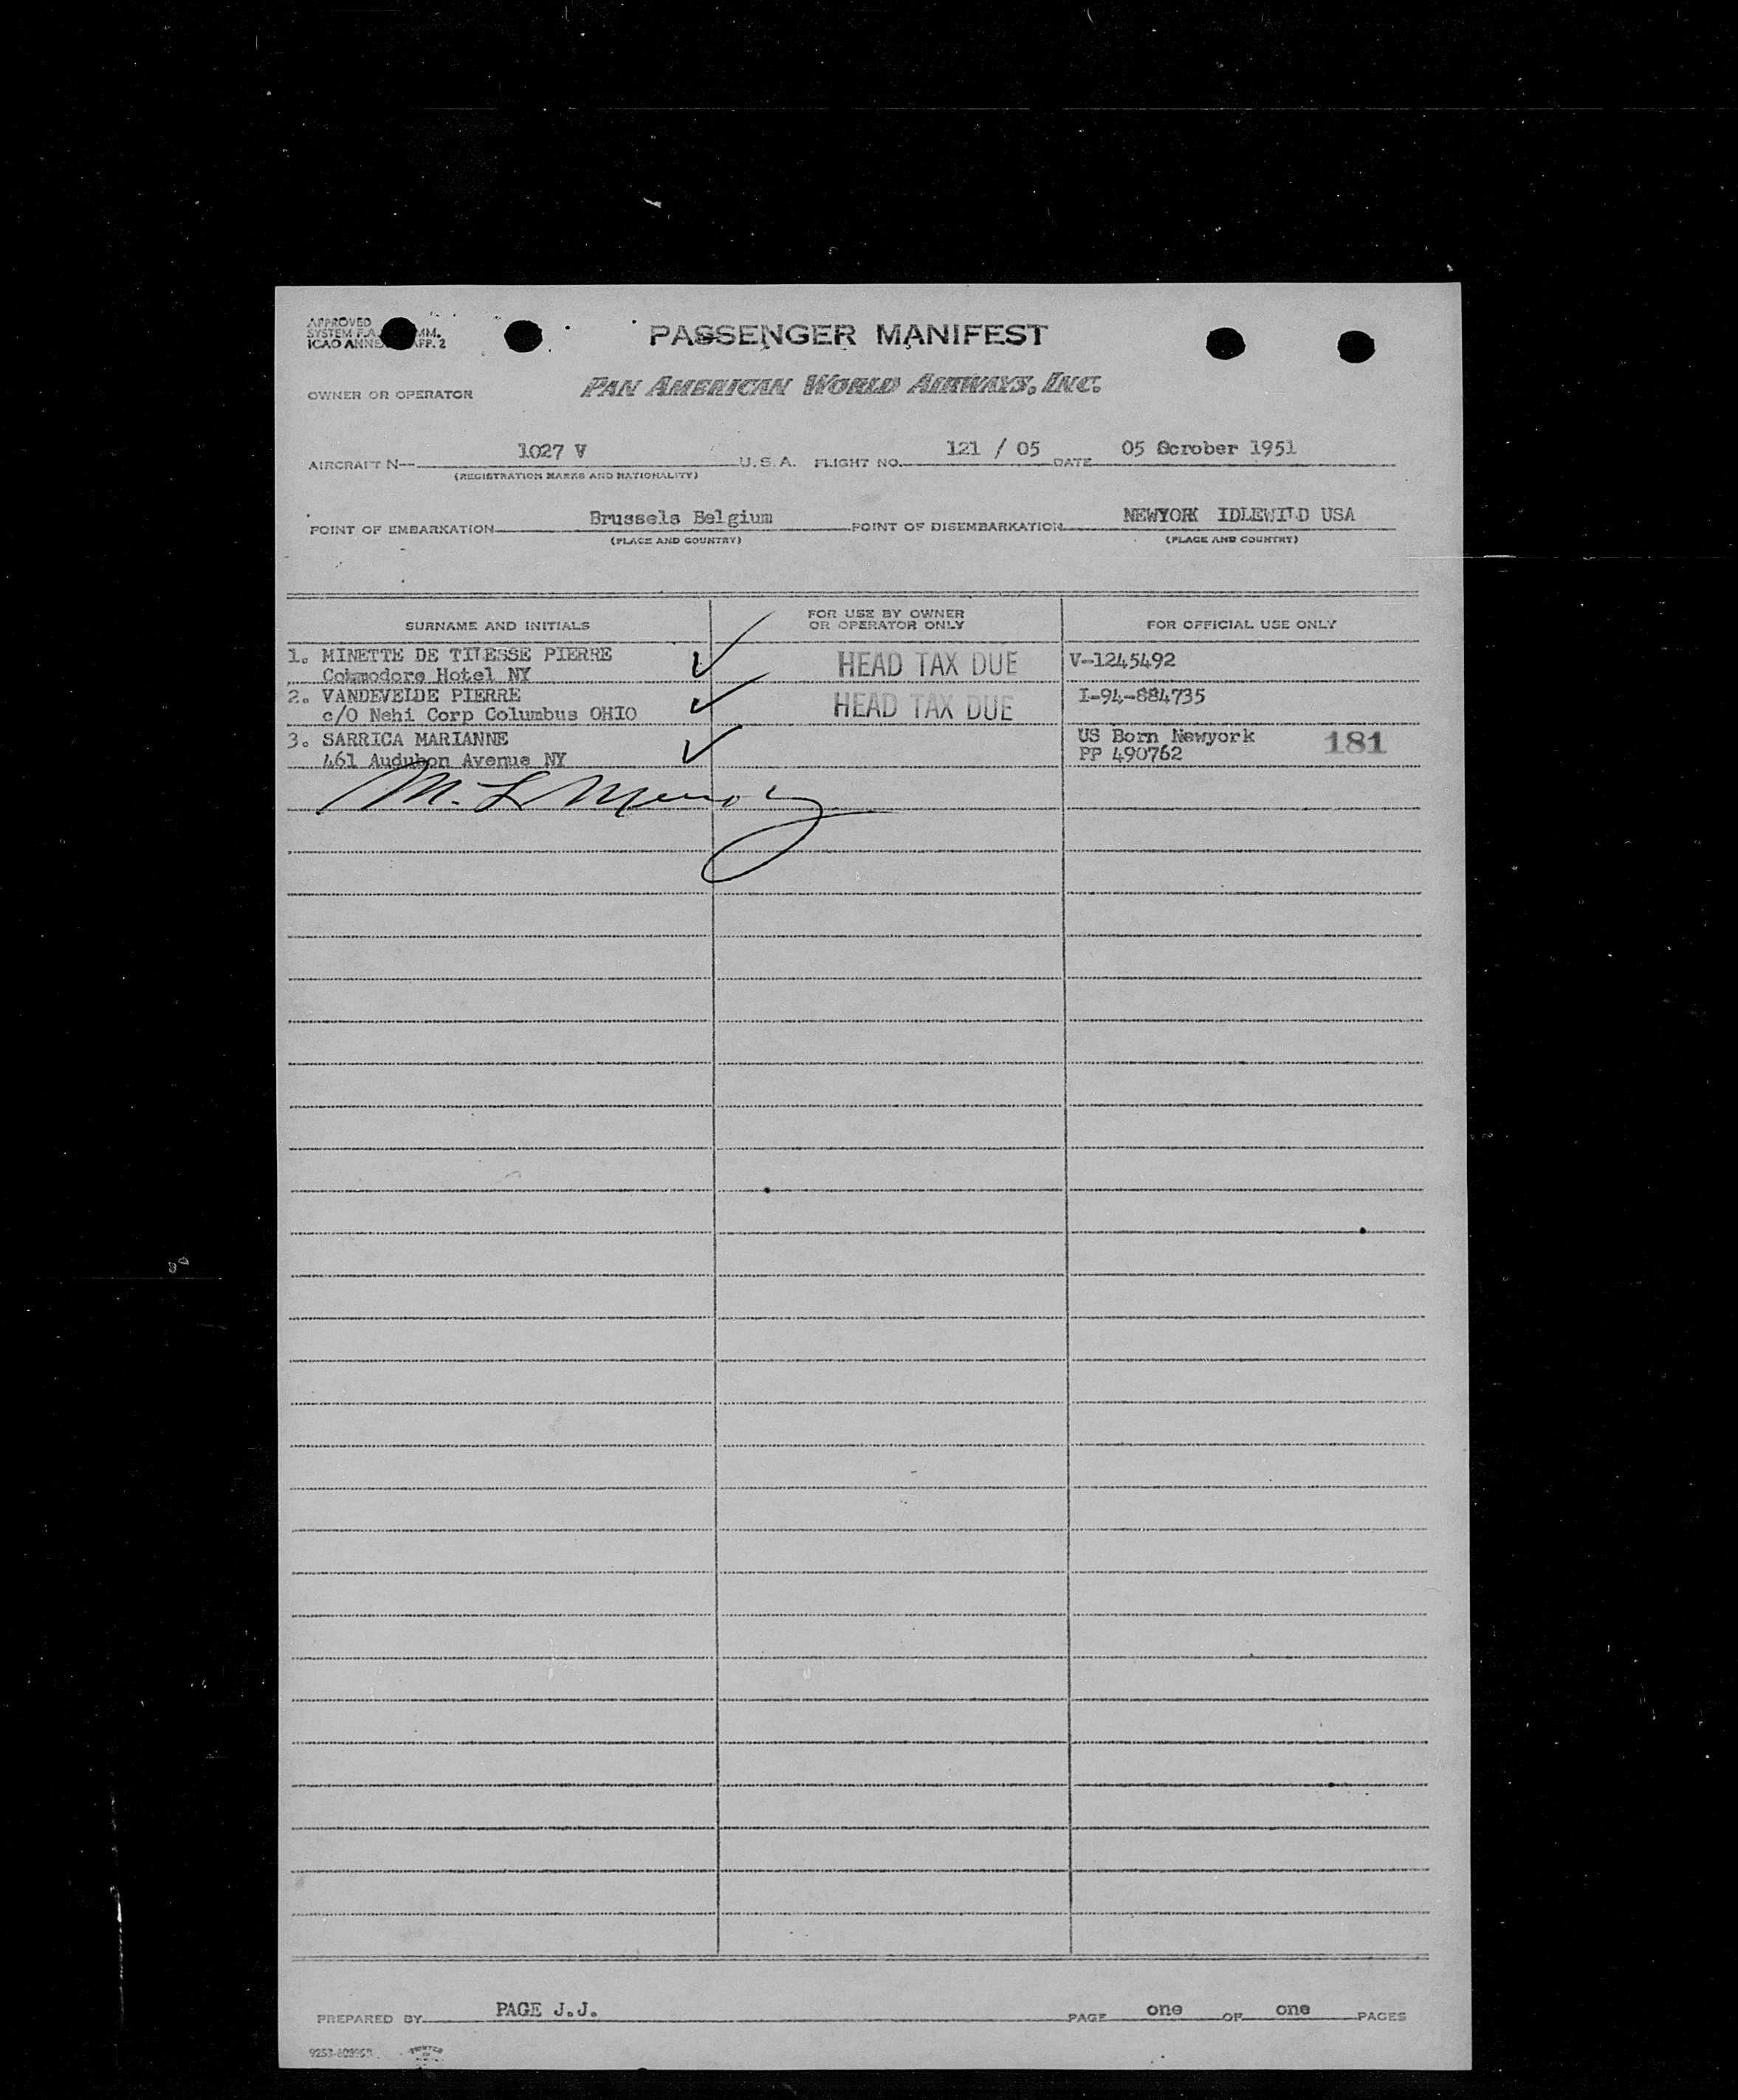 APPROVED
SYSTEM F.A. MM.
ICAO ANNE APP. 2
PASSENGER MANIFEST
OWNER OR OPERATOR PAN AMERICAN WORLD AIRWAYS, INC.
AIRCRAFT N— 1027 V U.S.A. FLIGHT NO. 121 / 05 DATE 05 Ocrober 1951
(REGISTRATION MARKS AND NATIONALITY)
POINT OF EMBARKATION Brussels Belgium POINT OF DISEMBARKATION NEWYORK IDLEWILD USA
(PLACE AND COUNTRY) (PLACE AND COUNTRY)
SURNAME AND INITIALS FOR USE BY OWNER OR OPERATOR ONLY FOR OFFICIAL USE ONLY
1. MINETTE DE TILESSE PIERRE HEAD TAX DUE V-1245492
Commodore Hotel NY
2. VANDEVELDE PIERRE HEAD TAX DUE I-94-884735
c/O Nehi Corp Columbus OHIO
3. SARRICA MARIANNE US Born Newyork 181
461 Audubon Avenue NY PP 490762
M. L.
PREPARED BY PAGE J.J. PAGE one OF one PAGES